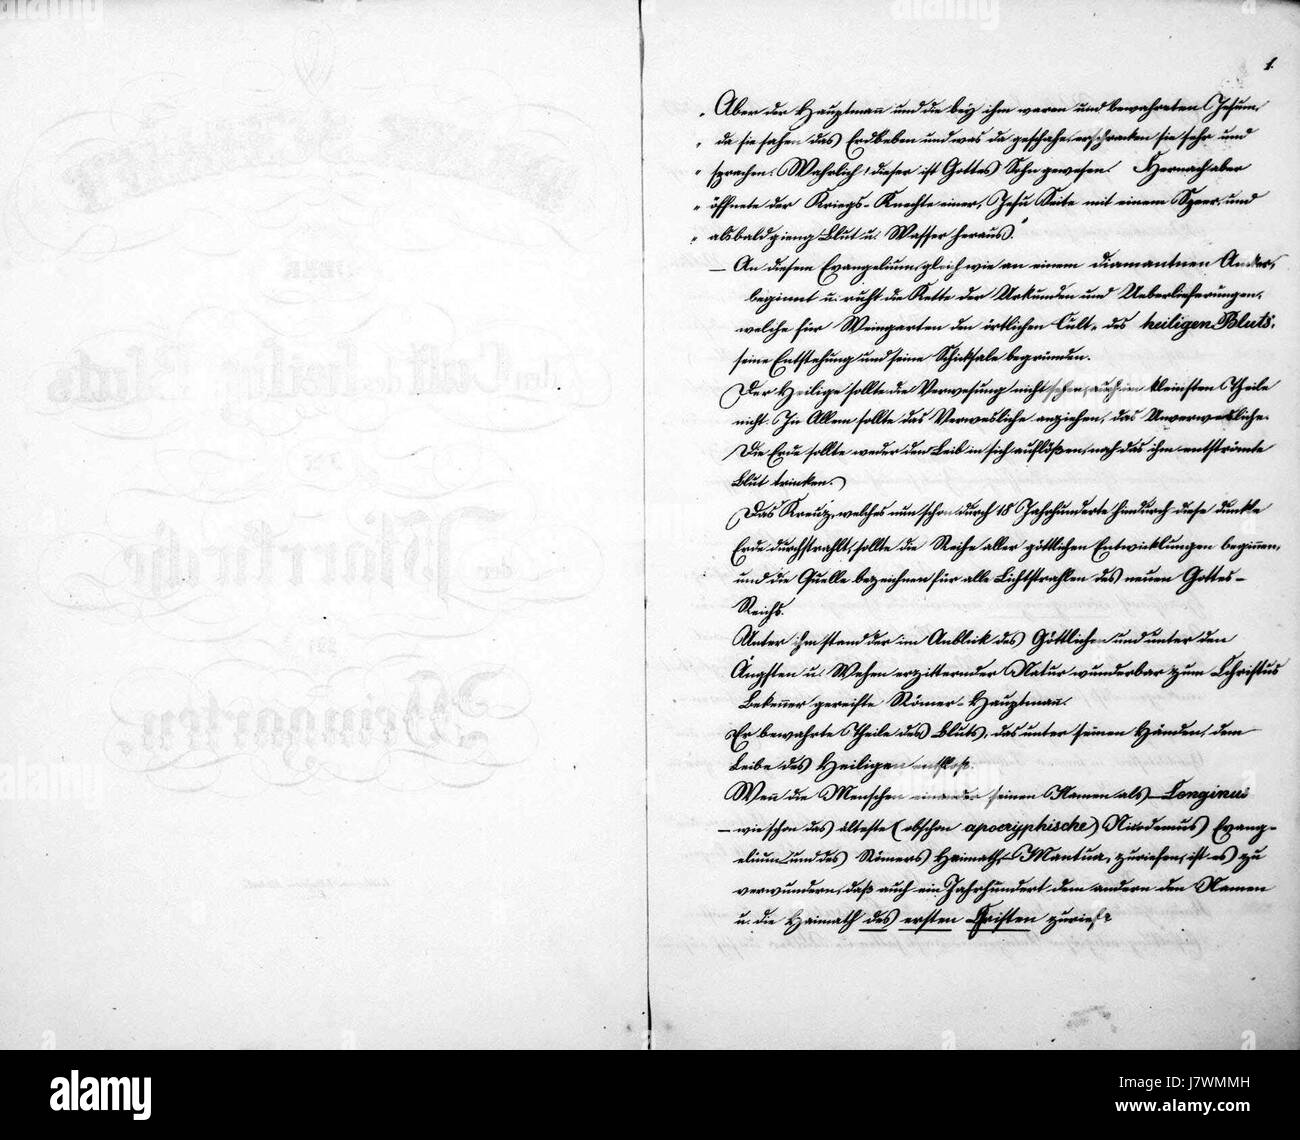 1.
„Aber der Hauptmann und die bey ihm waren und bewahreten Jesum,
„da sie sahen das Erdbeben und was da geschahe, erschracken sie sehr und
„sprachen: Wahrlich! dieser ist Gottes Sohn gewesen. Hernach aber
„öffnete der Kriegs-Knechte einer, Jesu Seite mit einem Speer, und
„alsbald gieng Blut u. Wasser heraus."
— An diesem Evangelium, gleich wie an einem diamantnen Anker,
beginnt u. ruht die Kette der Urkunden und Ueberlieferungen,
welche für Weingarten den örtlichen Cult, des heiligen Bluts,
seine Entstehung und seine Schicksale begründen.
Der Heilige sollte die Verwesung nicht sehen, auch im kleinsten Theile
nicht. In Allem sollte das Verwesliche anziehen, das Unverwesliche.
Die Erde sollte weder den Leib in sich auflößen, noch das ihm entströmte
Blut trinken.
Das Kreuz, welches nun schon durch 18 Jahrhunderte hindurch diese dunkle
Erde durchstrahlt, sollte die Reihe aller göttlichen Entwicklungen beginnen,
und die Quelle bezeichnen für alle Lichtstrahlen des neuen Gottes-
Reichs.
Unter ihm stand der im Anblick des Göttlichen und unter den
Ängsten u. Wehen erzitternder Natur wunderbar zum Christus
Bekenner gereifte Römer-Hauptmann.
Er bewahrte Theile des Bluts, das unter seinen Händen, dem
Leibe des Heiligen entfloß.
Wenn die Menschen einander seinen Namen als Longinus
— wie schon das älteste (obschon apocryphische) Nicodemus Evang-
elium und des Römers Heimath, Mantua, zuriefen, ist es zu
verwundern, daß auch ein Jahrhundert dem andern den Namen
u. die Haimath des ersten Christen zurief?
alamy
Image ID: J7WMMH
www.alamy.com